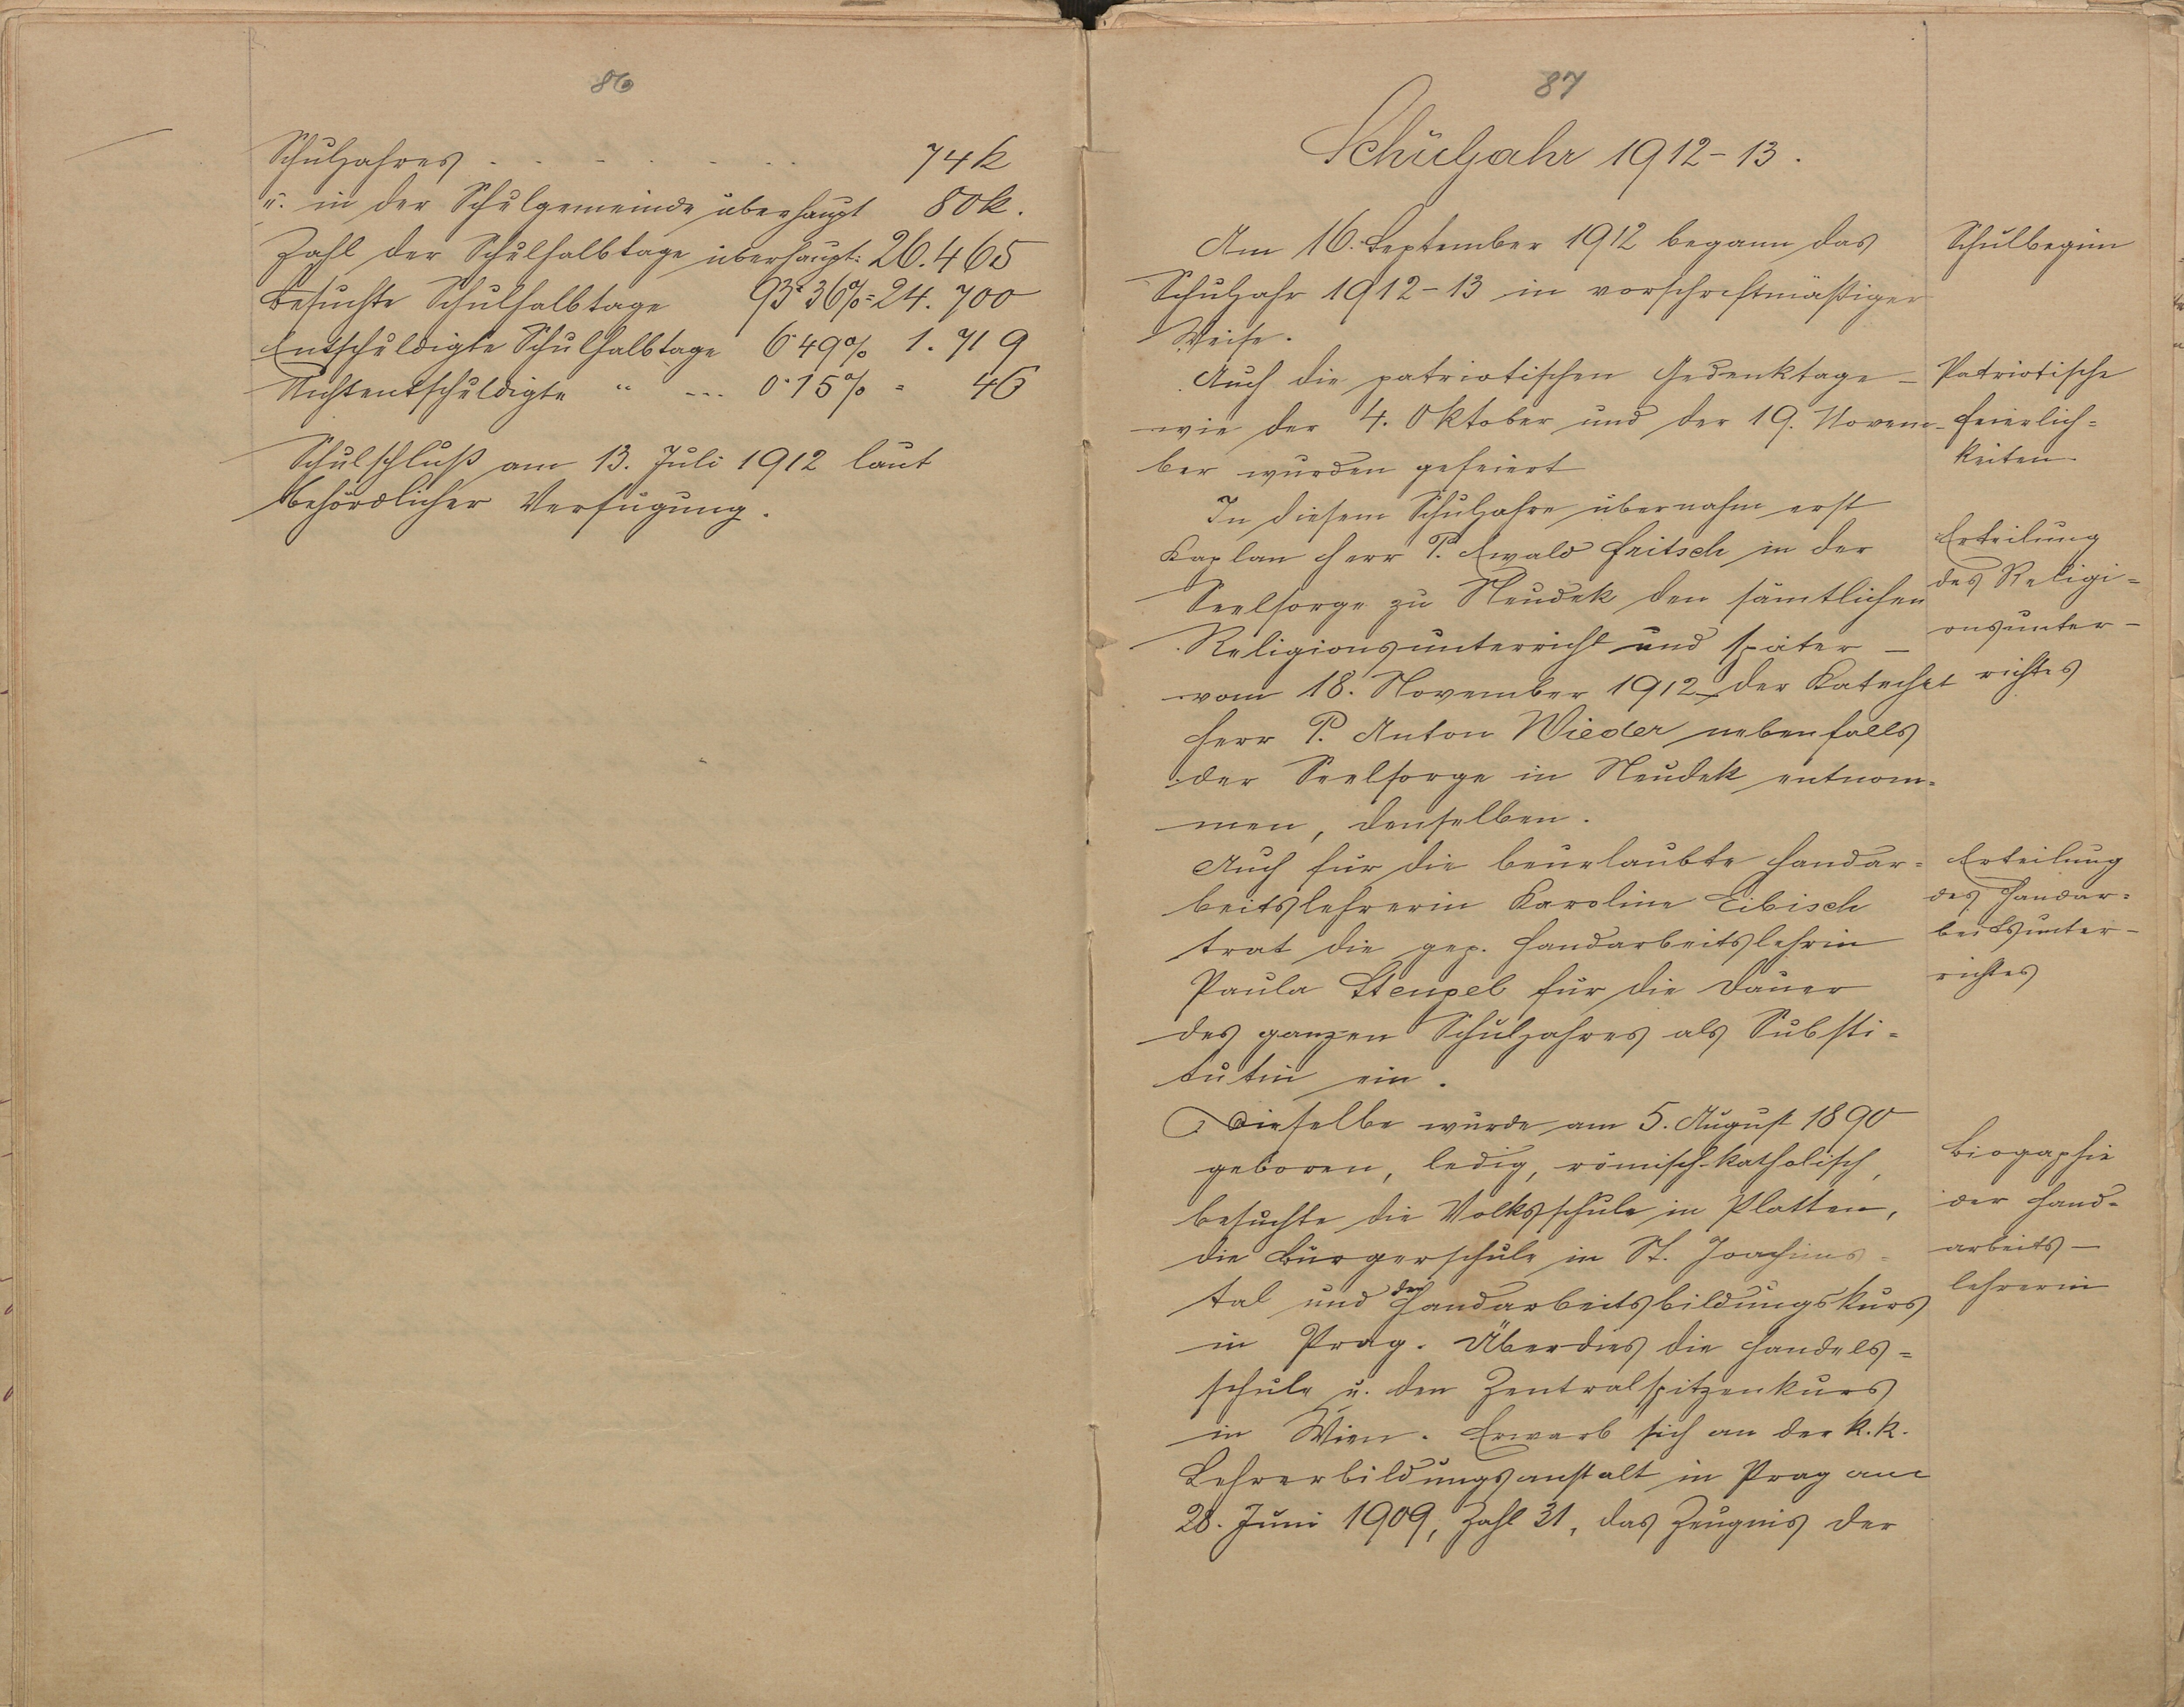 86
Schuljahres . . . . . . . 74 K
u. in der Schulgemeinde überhaupt 80 K.
Zahl der Schulhalbtage überhaupt: 26.465
Besuchte Schulhalbtage 93·36% = 24.700
Entschuldigte Schulhalbtage 6·49% 1.719
Nichtentschuldigte " --- 0·15% = 46
Schulschluß am 13. Juli 1912 laut
behördlicher Verfügung.
87
Schuljahr 1912-13.
Am 16. September 1912 begann das
Schuljahr 1912-13 in vorschriftmäßiger
Weise.
Schulbeginn
Auch die patriotischen Gedenktage –
wie der 4. Oktober und der 19. Novem-
ber wurden gefeiert
Patriotische
Feierlich=
keiten.
In diesem Schuljahre übernahm erst
Kaplan Herr P. Ewald Fritsch in der
Seelsorge zu Neudek den sämtlichen
Religionsunterricht und später –
vom 18. November 1912 – der Katechet
Herr P. Anton Wieder nebenfalls
der Seelsorge in Neudek entnom=
men, denselben.
Erteilung
des Religi=
onsunter-
richtes
Auch für die beurlaubte Handar=
beitslehrerin Karoline Eibisch
trat die gep. Handarbeitslehrin
Paula Stengel für die Dauer
des ganzen Schuljahres als Substi=
tutin ein.
Erteilung
des Handar=
beitsunter-
richtes
Dieselbe wurde am 5. August 1890
geboren, ledig, römisch-katholisch,
besuchte die Volksschule in Platten,
die Bürgerschule in St. Joachims=
tal und den Handarbeitsbildungskurs
in Prag. Überdies die Handels=
schule u. den Zentralspitzenkurs
in Wien. Erwarb sich an der k.k.
Lehrerbildungsanstalt in Prag am
28. Juni 1909, Zahl 31, das Zeugnis der
Biogaphie
der Hand=
arbeits-
lehrerin